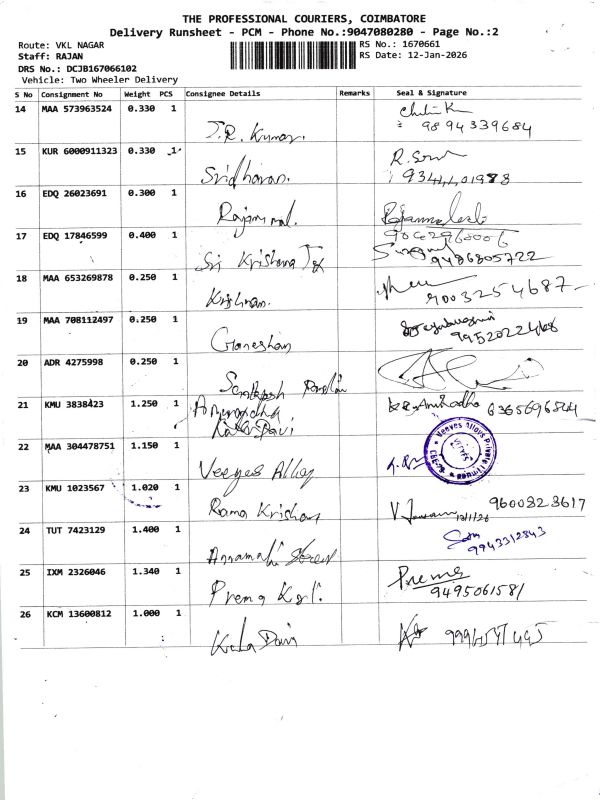 THE PROFESSIONAL COURIERS, COIMBATORE
Delivery Runsheet - PCM - Phone No.:9047080280 - Page No.:2
Route: VKL NAGAR
RS No.: 1670661
Staff: RAJAN
RS Date: 12-Jan-2026
DRS No.: DCJB167066102
Vehicle: Two Wheeler Delivery
S No Consignment No Weight PCS Consignee Details Remarks Seal & Signature
14 MAA 573963524 0.330 1 J.R. Kumar. 9894339684
15 KUR 6000911323 0.330 1 Sridharan. R.
16 EDQ 26023691 0.300 1 Rajammal.
17 EDQ 17846599 0.400 1 Sri Krishna Tex 9486805722
18 MAA 653269878 0.250 1 Krishnan. 9003254687
19 MAA 708112497 0.250 1 Ganeshan 9952022468
20 ADR 4275998 0.250 1 Santhosh
21 KMU 3838423 1.250 1 Anuradha Anuradha 6365696844
22 MAA 304478751 1.150 1 Veeyes Alloy Veeyes Alloys Private Limited VEEYES
23 KMU 1023567 1.020 1 Rama Krishnan V 12/1/26 9600823617
24 TUT 7423129 1.400 1 Annamalai Stores 9943312843
25 IXM 2326046 1.340 1 Prema Prema 9495061581
26 KCM 13600812 1.000 1 Kala Devi